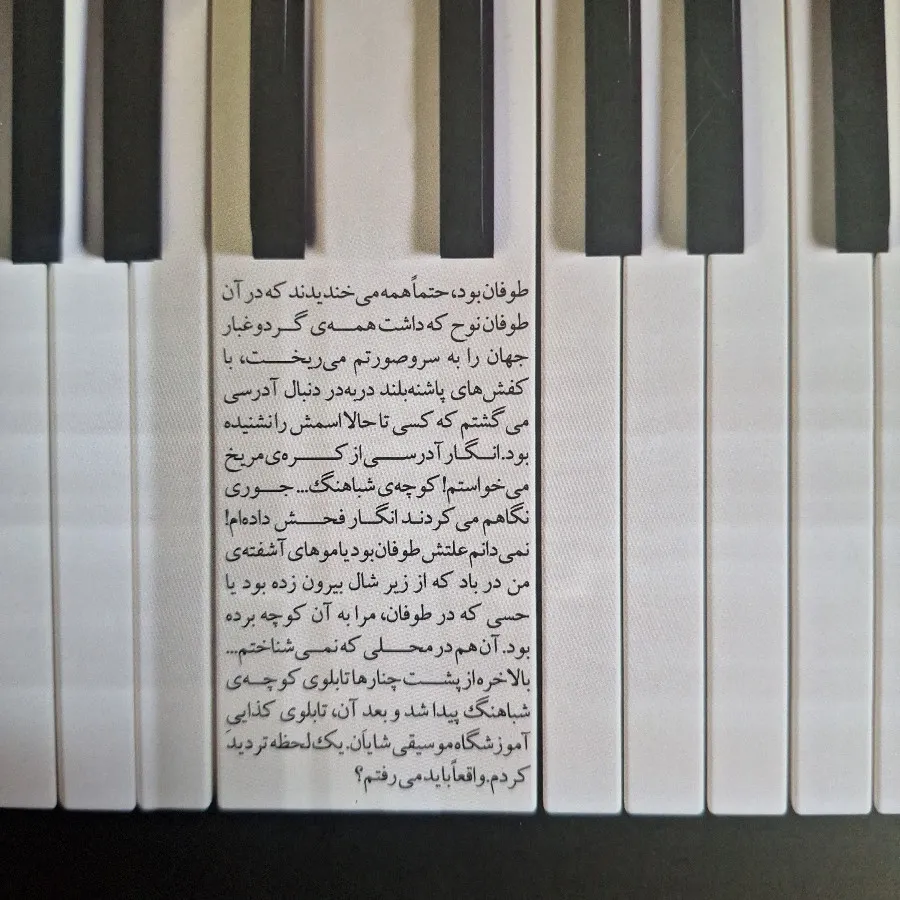 طوفان بود، حتماً همه می‌خندیدند که در آن
طوفان نوح که داشت همه‌ی گردوغبار
جهان را به سروصورتم می‌ریخت، با
کفش‌های پاشنه‌بلند دربه‌در دنبال آدرسی
می‌گشتم که کسی تا حالا اسمش را نشنیده
بود. انگار آدرسی از کره‌ی مریخ
می‌خواستم! کوچه‌ی شباهنگ... جوری
نگاهم می‌کردند انگار فحش داده‌ام!
نمی‌دانم علتش طوفان بود یا موهای آشفته‌ی
من در باد که از زیر شال بیرون زده بود یا
حسی که در طوفان، مرا به آن کوچه برده
بود. آن هم در محلی که نمی‌شناختم...
بالاخره از پشت چنارها تابلوی کوچه‌ی
شباهنگ پیدا شد و بعد آن، تابلوی کذایی
آموزشگاه موسیقی شایان. یک لحظه تردید
کردم. واقعاً باید می‌رفتم؟